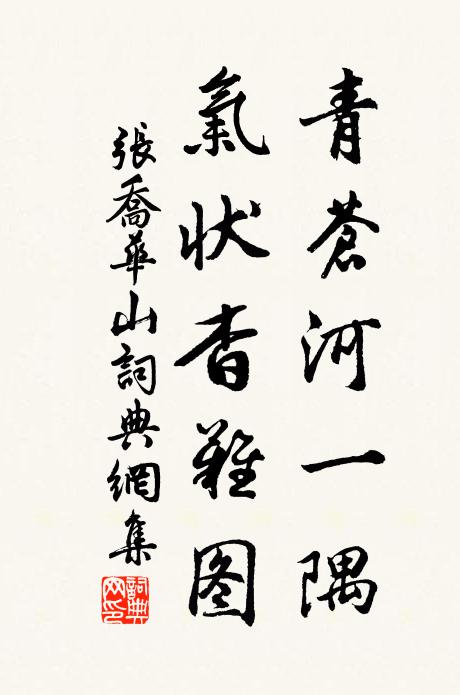 青蒼河一隅
氣状杳難图
張喬華山詞典網集
詞典網印